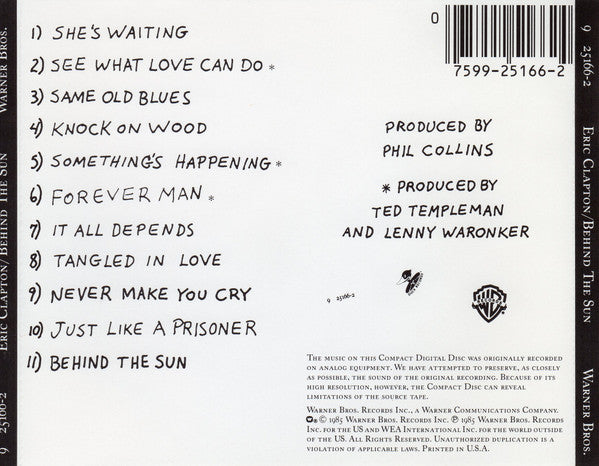 1) SHE'S WAITING
2) SEE WHAT LOVE CAN DO *
3) SAME OLD BLUES
4) KNOCK ON WOOD
5) SOMETHING'S HAPPENING *
6) FOREVER MAN *
7) IT ALL DEPENDS
8) TANGLED IN LOVE
9) NEVER MAKE YOU CRY
10) JUST LIKE A PRISONER
11) BEHIND THE SUN
0
7599-25166-2
PRODUCED BY
PHIL COLLINS
* PRODUCED BY
TED TEMPLEMAN
AND LENNY WARONKER
9 25166-2
THE MUSIC ON THIS COMPACT DIGITAL DISC WAS ORIGINALLY RECORDED
ON ANALOG EQUIPMENT. WE HAVE ATTEMPTED TO PRESERVE, AS CLOSELY
AS POSSIBLE, THE SOUND OF THE ORIGINAL RECORDING. BECAUSE OF ITS
HIGH RESOLUTION, HOWEVER, THE COMPACT DISC CAN REVEAL
LIMITATIONS OF THE SOURCE TAPE.
WARNER BROS. RECORDS INC., A WARNER COMMUNICATIONS COMPANY.
© 1985 WARNER BROS. RECORDS INC. ℗ 1985 WARNER BROS. RECORDS
INC. FOR THE US AND WEA INTERNATIONAL INC. FOR THE WORLD OUTSIDE
OF THE US. ALL RIGHTS RESERVED. UNAUTHORIZED DUPLICATION IS A
VIOLATION OF APPLICABLE LAWS. PRINTED IN U.S.A.
9 25166-2 ERIC CLAPTON/BEHIND THE SUN WARNER BROS.
9 25166-2 ERIC CLAPTON/BEHIND THE SUN WARNER BROS.